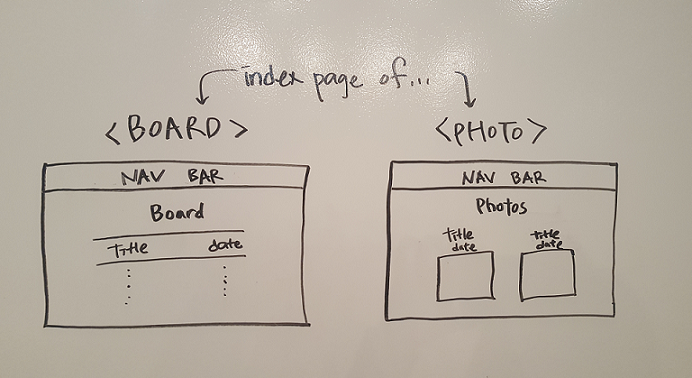 index page of...
<BOARD>
NAV BAR
Board
Title date
<PHOTO>
NAV BAR
Photos
Title Title
date date